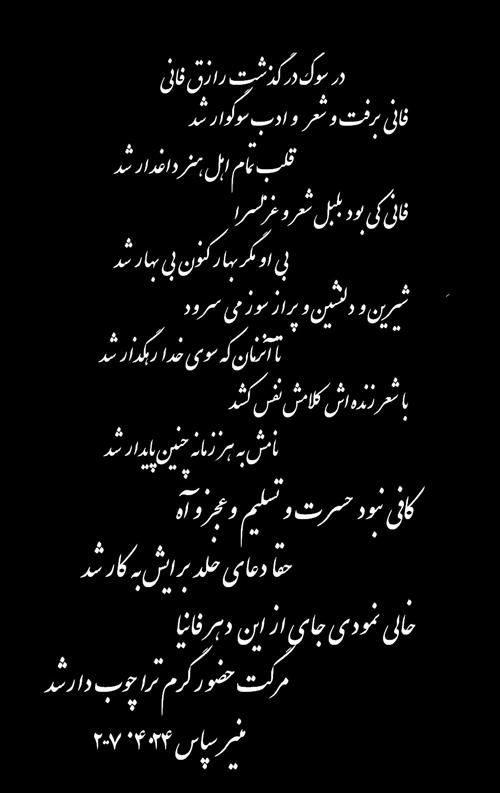 در سوک درگذشت رازق فانی
فانی برفت و شعر و ادب سوگوار شد
قلب تمام اهل هنر داغدار شد
فانی کی بود بلبل شعر و غزلسرا
بی او مگر بهار کنون بی بهار شد
شیرین و دلنشین و پر از سوز می سرود
تا آنزمان که سوی خدا رهگذار شد
با شعر زنده اش کلامش نفس کشد
نامش به هر زمانه چنین پایدار شد
کافی نبود حسرت و تسلیم و عجز و آه
حقا دعای خلد برایش به کار شد
خالی نمودی جای از این دهر فانیا
مرگت حضور گرم ترا چوب دار شد
منیر سپاس